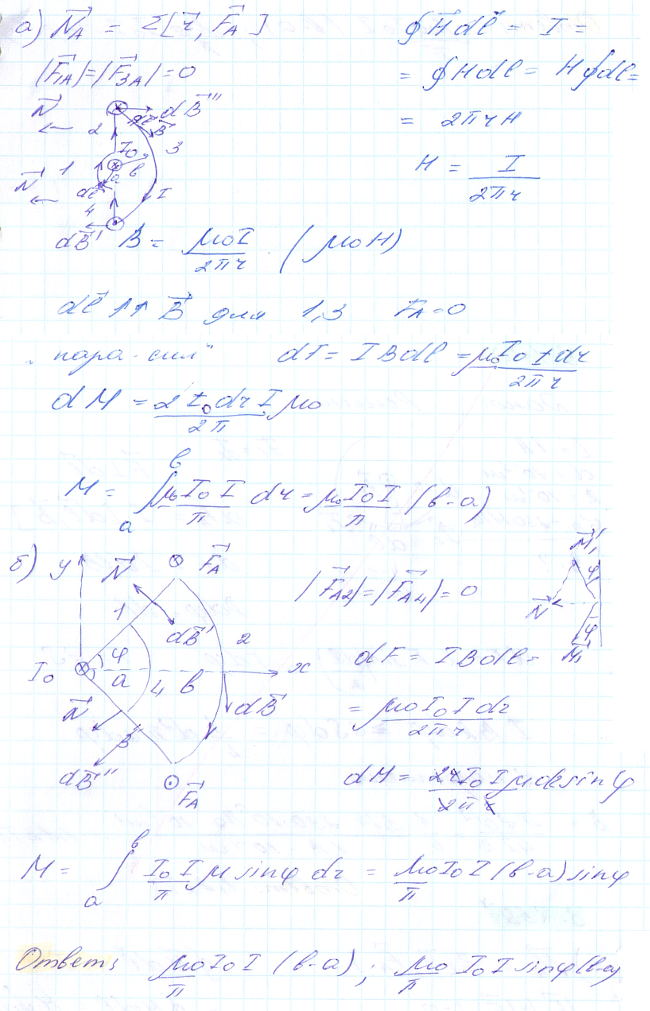 а) N⃗_A = Σ[r⃗, F⃗_A]
|F⃗_1A| = |F⃗_3A| = 0
∮H⃗dℓ⃗ = I =
= ∮Hdℓ = H∮dℓ =
= 2πrH
H = I / 2πr
N⃗ dB⃗"
2 dℓ⃗ B⃗ 3
I₀ 1 a b
N⃗ dℓ⃗ 4 I
dB⃗'
B = μ₀I / 2πr (μ₀H)
dℓ⃗ ↑↑ B⃗ для 1,3 F_A = 0
„пара сил" dF = IBdℓ = μ₀I₀Idr / 2πr
dM = 2I₀drIμ₀ / 2π
M = ∫_a^b μ₀I₀I / π dr = μ₀I₀I / π (b-a)
б) y N⃗ F⃗_A
1 dB⃗' 2
I₀ φ a 4 b x
N⃗ 3 dB⃗
dB⃗" F⃗_A
|F⃗_A2| = |F⃗_A4| = 0
M⃗₁' φ
N⃗
φ M⃗₁
dF = IBdℓ =
= μ₀I₀Idr / 2πr
dM = 2rI₀Iμdrsinφ / 2πr
M = ∫_a^b I₀I / π μ sinφ dr = μ₀I₀I / π (b-a) sinφ
Ответ: μ₀I₀I / π (b-a); μ₀ / π I₀I sinφ(b-a)